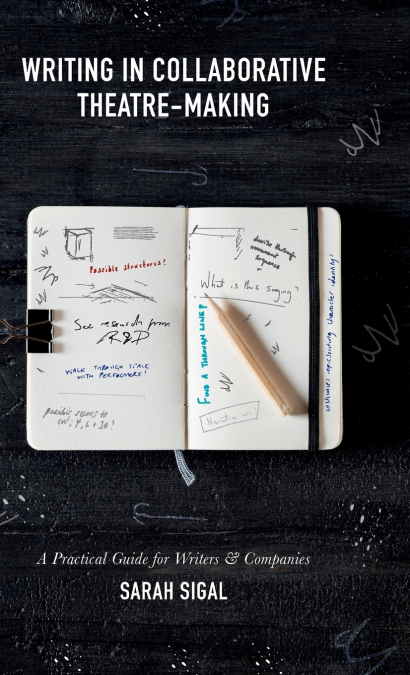 WRITING IN COLLABORATIVE
THEATRE-MAKING
Possible structures!
See research from
R&D
WALK THROUGH SPACE
WITH PERFORMERS!
possible scenes to
cut; 4, 6 + 10?
devise through
movement
sequence
What is this saying?
FIND A THROUGH LINE?
Narrative arc?
costumes representing character identity?
A Practical Guide for Writers & Companies
SARAH SIGAL